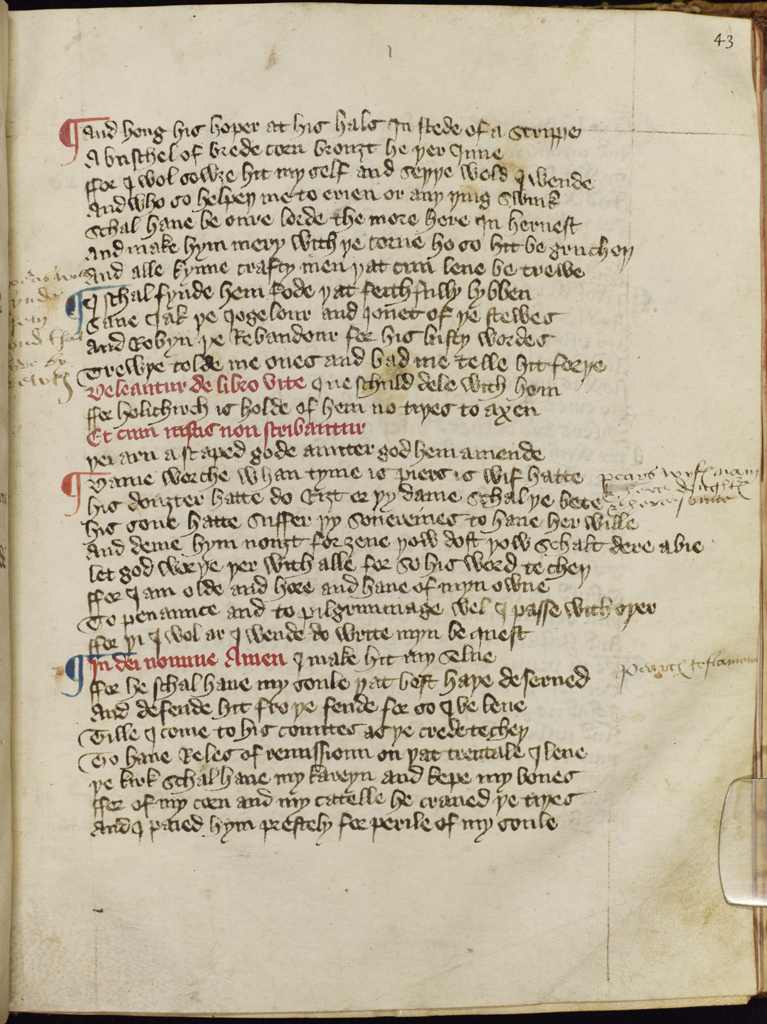 43
And heng his hoper at his hals In stede of a Scrippe
A buschel of brede corn brouzt he þer Inne
ffor I wol sowze hit my self and seþþe wold I wende
And who so helpeþ me to erien or any þing Swink
Schal haue be oure lorde the more here In heruest
And make hym mery with þe corne ho so hit be gruccheþ
And alle kynne crafty men þat cun leue be trewe
I schal fynde hem fode þat feithfully lybben
Saue Iak þe Iogelour and Ionet of þe stewes
And Robyn þe Rebaudour for his lusty wordes
Trewþe tolde me ones and bad me telle hit forþe
Deleantur de libro vite I ne schuld dele with hom
ffor holichirch is holde of hem no tiþes to axen
Et cum iustis non scribantur
þei arn ascaped gode auntter god hem amende
Dame worche whan tyme is piers is wif hatte
his douzter hatte do Rizt or þy dame Schal þe bete
his sone hatte Suffer þy Souereines to haue her wille
And deme hym nouzt for zene þow dost þow Schalt dere abie
let god worþe þer with alle for so his word techeþ
ffor I am olde and hore and haue of myn owne
To penaunce and to pilgrimmage wel I passe with oþer
ffor þi I wol ar I wende do write myn be quest
In dei nomine Amen I make hit my selue
ffor he schal haue my soule þat best haþe deserued
And defende hit fro þe fende for so I be leue
Tille I come to his countes as þe crede techeþ
To haue Reles of remissioun on þat trentale I leue
þe kirk Schal haue my kareyn and kepe my bones
ffor of my corn and my catelle he craued þe tiþes
And I paied hym prestely for perile of my soule
pears wyff nam
pearce testament